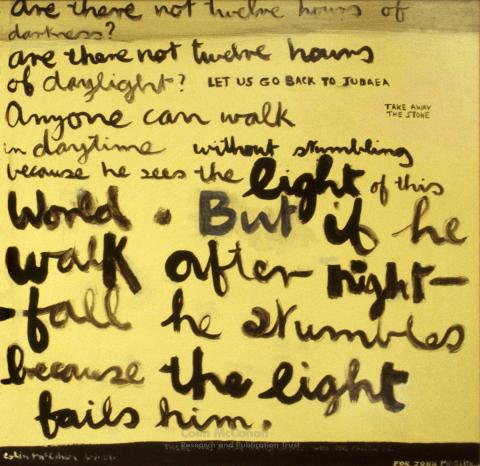 are there not twelve hours of
darkness?
are there not twelve hours
of daylight? LET US GO BACK TO JUDAEA
Anyone can walk
TAKE AWAY
THE STONE
in daytime without stumbling
because he sees the light of this
World. But if he
walk after night-
fall he stumbles
because the light
fails him.
Colin McCahon
Research and Publication Trust
FOR JOHN